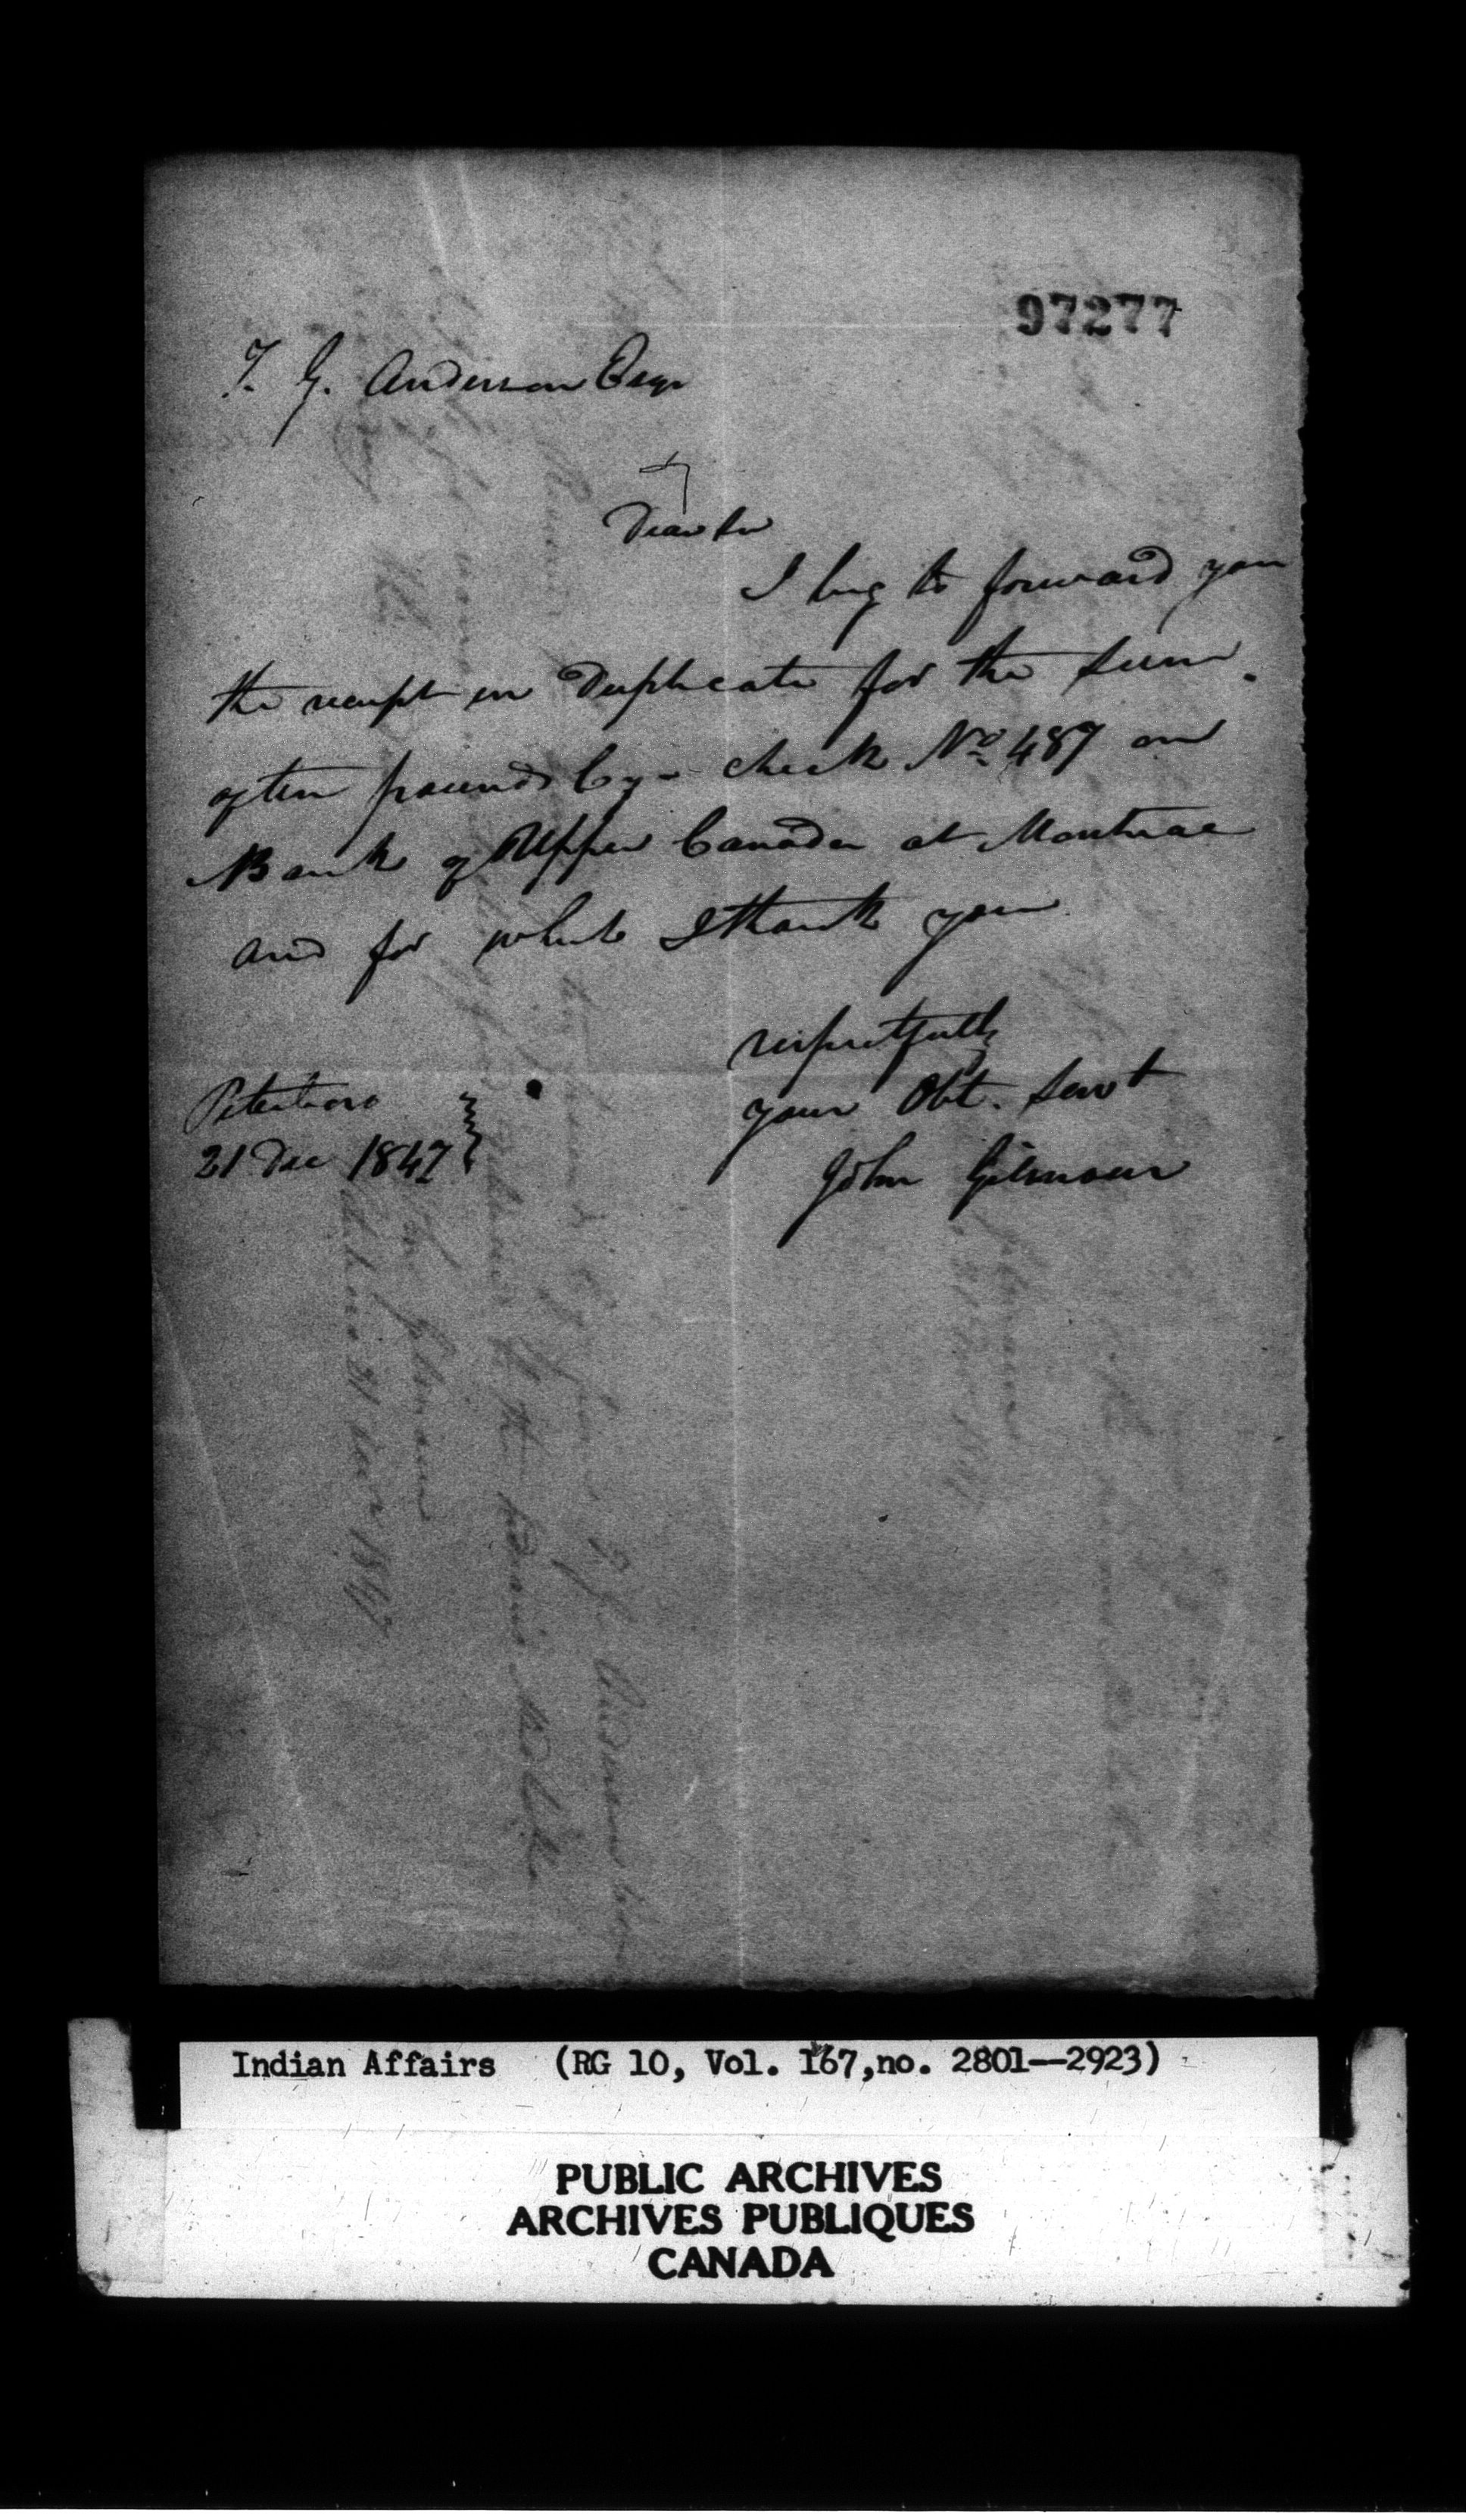 97277
T. G. Anderson Esqr
Dear Sir
I beg to forward you
the receipt in Duplicate for the sum
of ten pounds Cy - check No. 487 on
Bank of Upper Canada at Montreal
and for which I thank you
respectfully
your Obt. Servt
John Gilmour
Peterboro
21 Dec 1847
Indian Affairs (RG 10, Vol. 167, no. 2801--2923)
PUBLIC ARCHIVES
ARCHIVES PUBLIQUES
CANADA